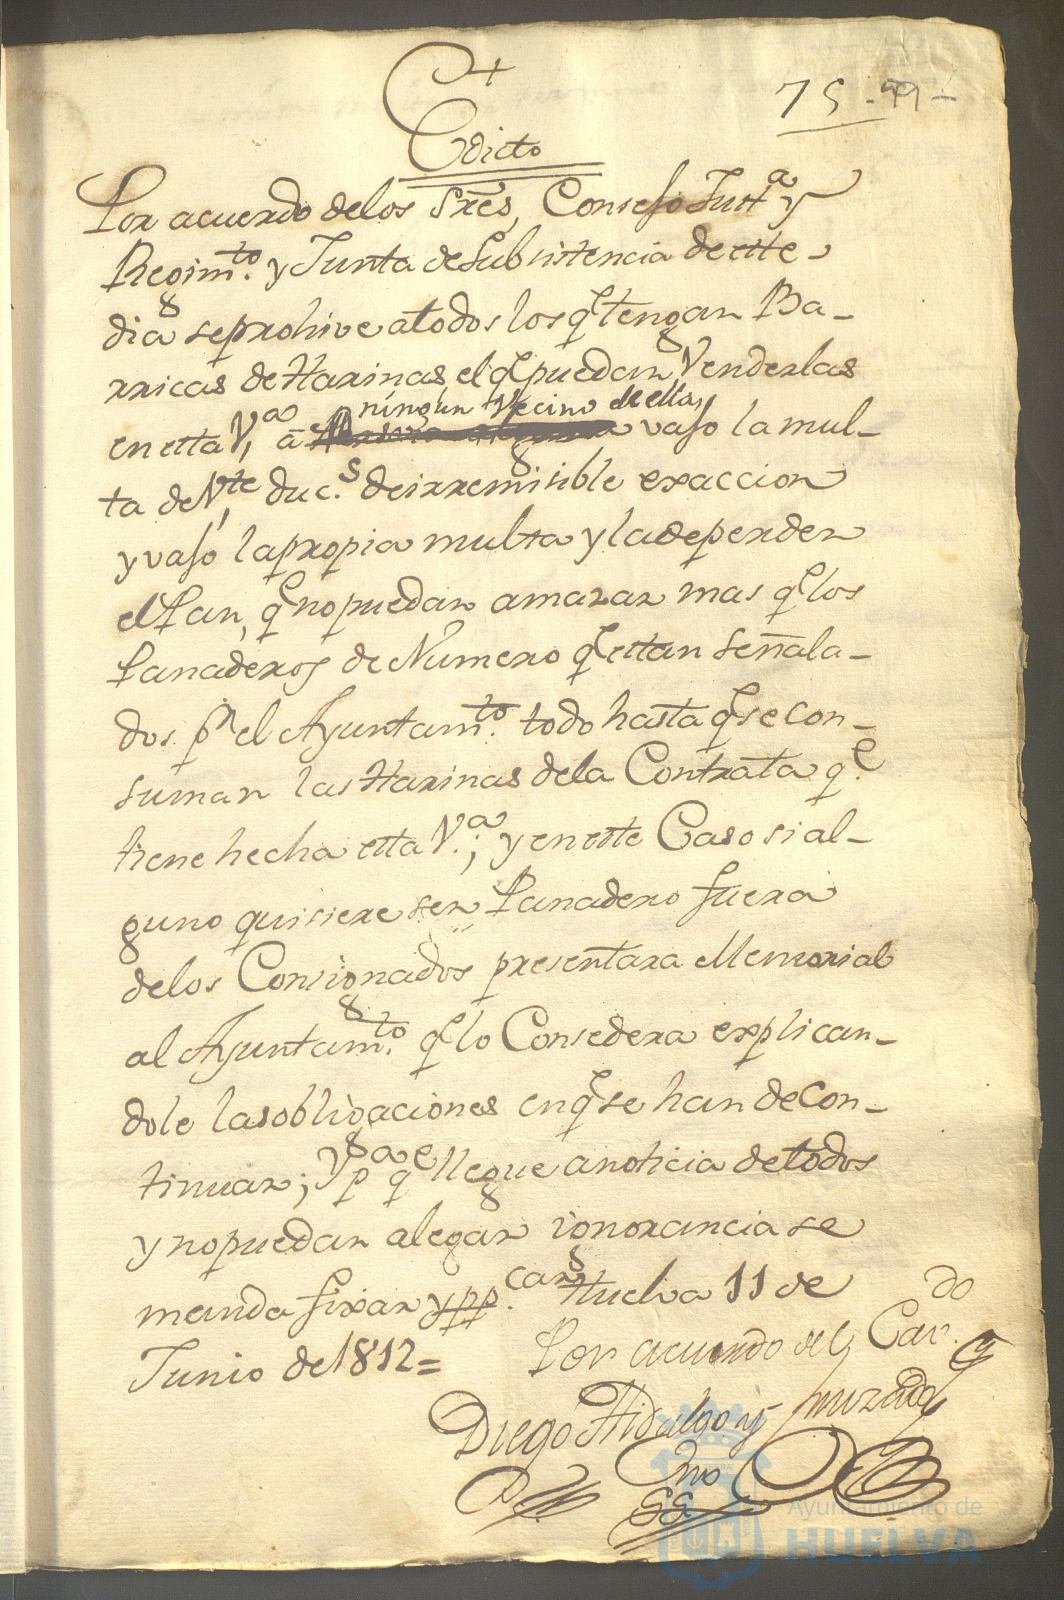 75 - 99 -
Edicto
Por acuerdo delos Sres, Consejo Justa y
Regimto. y Junta de Subsistencia de este
dia se prohive atodos los q tengan Ba-
rricas de Harinas, el q puedan Venderlas
en esta Va. a ningun Vecino de ella, vajo la mul-
ta de Vte ducs. de irremisible exaccion
y vajo la propia multa y la de perder
el Pan, q no puedan amazar mas q los
Panaderos de Numero q estan señala-
dos pr el Ayuntamto. todo hasta q se con-
suman las Harinas dela Contrata qe.
tiene hecha esta Va.; y en este Caso si al-
guno quisiere ser Panadero fuera
delos Consignados presentara Memorial
al Ayuntamto. q lo Consedera explican-
dole las obligaciones en q se han de Con-
tinuar; y pa qe llegue a noticia de todos
y no puedan alegar ignorancia se
manda fixar y pp.car Huelva 11 de
Junio de 1812=
Por acuerdo del Cavdo.
Diego Hidalgo y
Sno
Ayuntamiento de
HUELVA